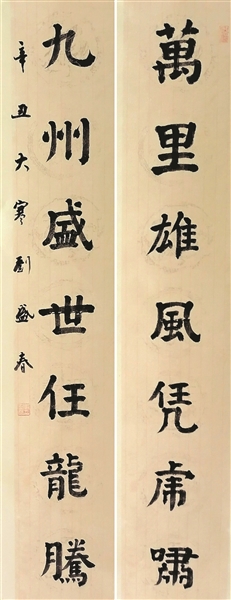 萬里雄風凭虎嘯
九州盛世任龍騰
辛丑大寒劉盛春